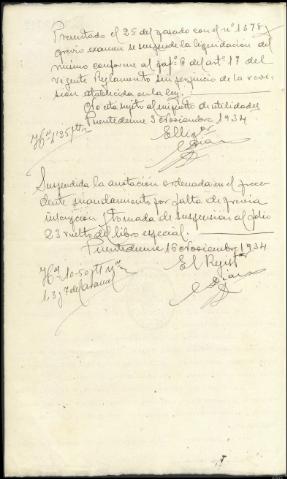 Presentado el 25 del pasado con el nº 1678 y
previo examen se suspende la liquidación del
mismo conforme al pafº 8 del artº 1º del
vigente Reglamento sin perjuicio de la revi-
sión establecida en la ley.
No está sujeto al impuesto de utilidades
Puentedeume 3 Noviembre 1934
El Liqor
Suspendida la anotación ordenada en el prece-
dente mandamiento por falta de previa
inscripción y tomada de suspensión al folio
23 vuelto del libro especial.
Puentedeume 16 Noviembre 1934
El Regisr
Hos 10-50 ptt
1, 3 y 7 del arancel